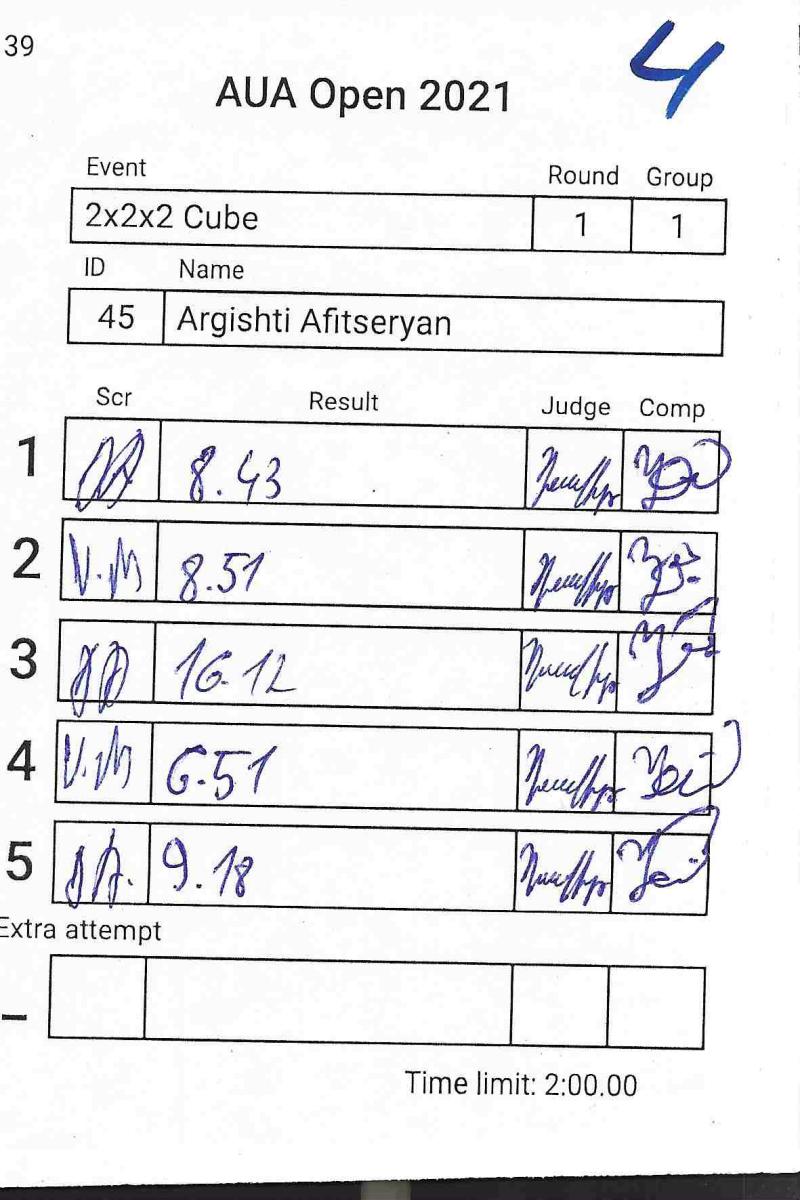 39
4
AUA Open 2021
Event Round Group
2x2x2 Cube 1 1
ID Name
45 Argishti Afitseryan
Scr Result Judge Comp
1 8.43
2 V.M 8.51
3 16.12
4 V.M 6.51
5 9.18
Extra attempt
_
Time limit: 2:00.00